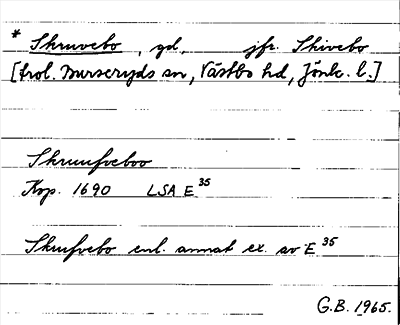 * Skruvebo, gd, jfr. Skivebo
[trol. Burseryds sn, Västbo hd, Jönk. l.]
Skrunfveboo
Kop. 1690 LSA E 35
Skrufvebo enl. annat ex. av E 35
G.B. 1965.